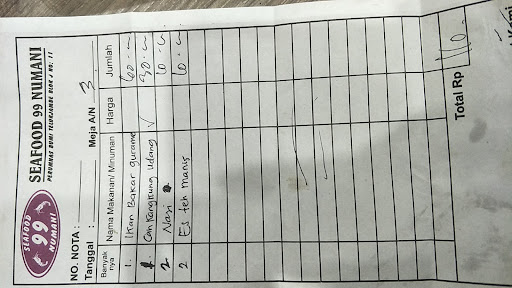 SEAFOOD 99 NUMANI
SEAFOOD 99 NUMANI
PERUMNAS BUMI TELUKJAMBE BLOK J NO: 11
NO. NOTA :
Tanggal : Meja A/N 3
Banyak nya Nama Makanan/ Minuman Harga Jumlah
1. Ikan Bakar gurame 60.
1. Cah Kangkung udang √ 30.
2 Nasi 10.
2 Es teh manis 10.
Total Rp 110.
Kami